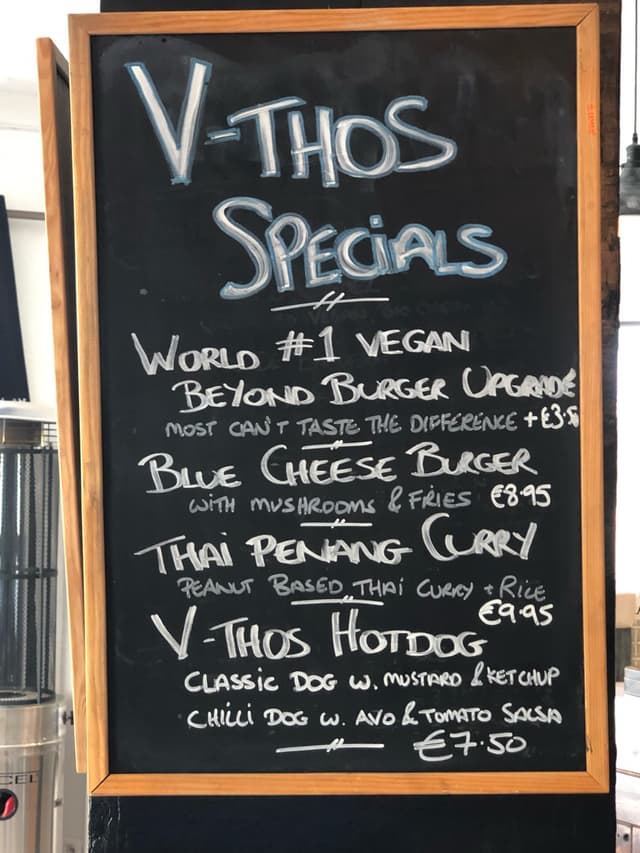 V-THOS
SPECiALS
WORLD #1 VEGAN
BEYOND BURGER UPGRADE
MOST CAN'T TASTE THE DIFFERENCE +€3.50
BLUE CHEESE BURGER
WiTH MUSHROOMS & FRIES €8.95
THAi PENANG CURRY
PEANUT BASED THAi CURRY + RiCE
€9.95
V-THOS HOTDOG
CLASSiC DOG W. MUSTARD & KETCHUP
CHiLLi DOG W. AVO & TOMATO SALSA
€7.50